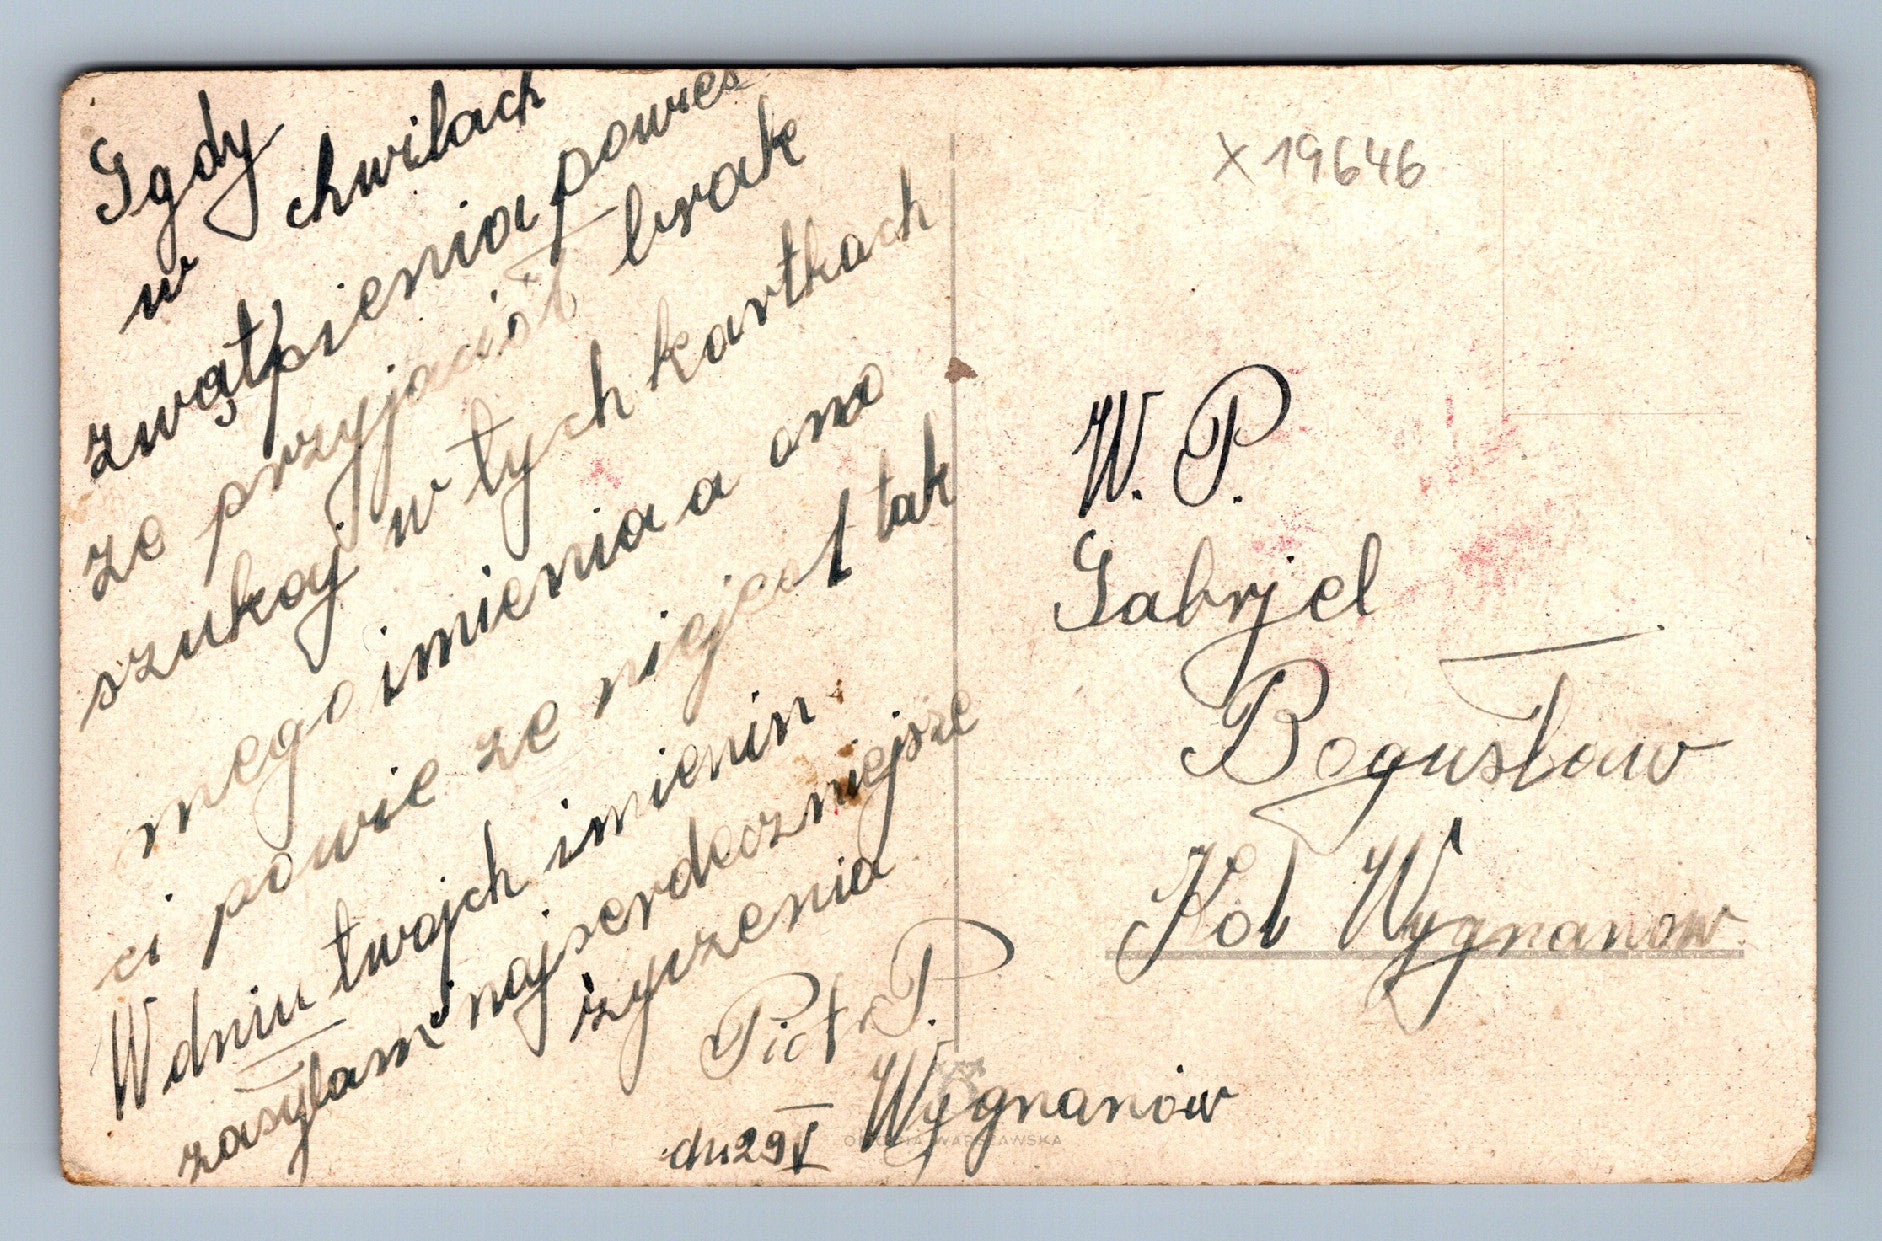 Igdy
w chwilach
zwątpienia powies
ze przyjaciół brak
szukaj w tych kartkach
mego imienia a ono
ci powie ze niejest tak
W dniu twojch imienin
zasyłam najserdeczniejsze
zyczenia
Piotr P.
dn 29 V Wygnanów
X 19646
W. P.
Gabrjel
Bogusław
Kol Wygnanow.
WARSZAWSKA